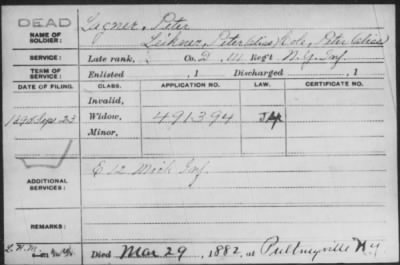 DEAD
NAME OF SOLDIER:
Ligner, Peter
Leikner, Peter (alias) Cole, Peter (alias)
SERVICE:
Late rank, Co. D, 111 Reg't N.Y. Inf.
TERM OF SERVICE:
Enlisted , 1 Discharged , 1
DATE OF FILING. CLASS. APPLICATION NO. LAW. CERTIFICATE NO.
Invalid,
1890 Sept 23 Widow, 491394
Minor,
ADDITIONAL SERVICES:
E 12 Mich Inf.
REMARKS:
Died Mar 29, 1882, at Pultneyville N.Y.